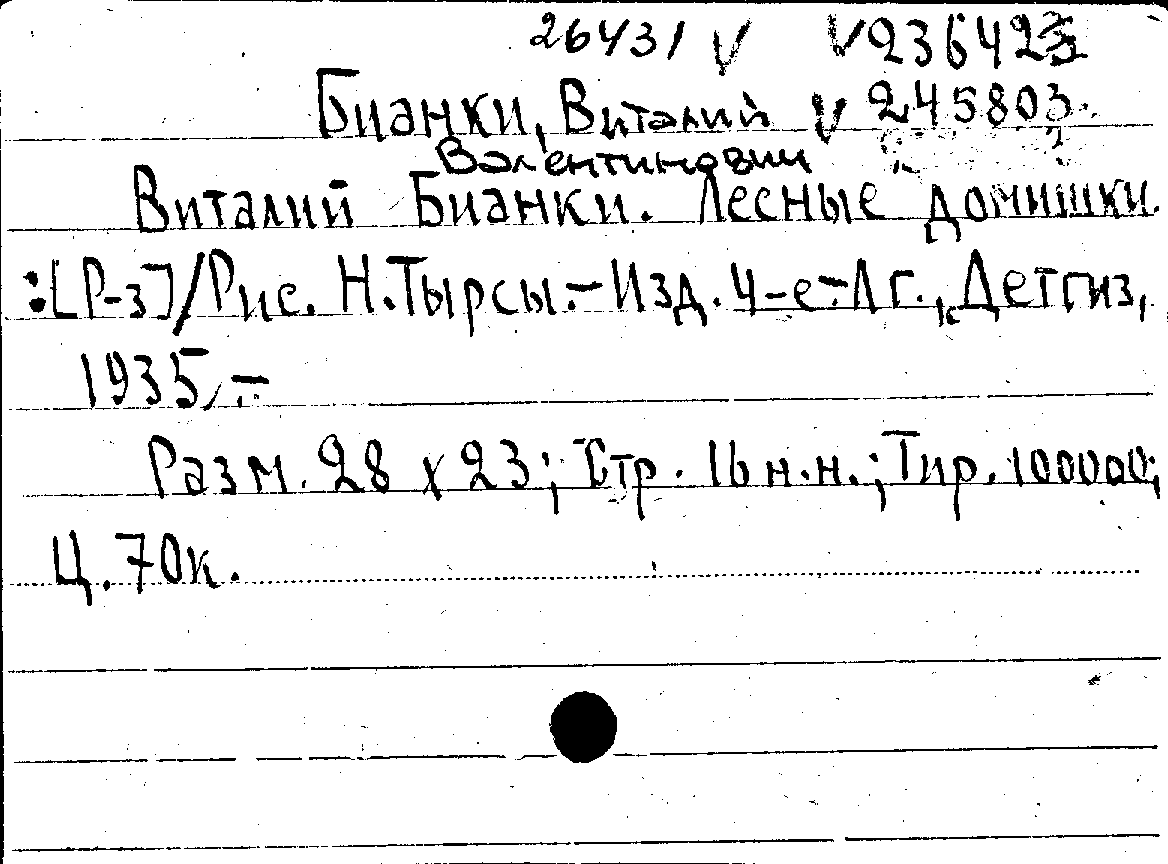 26431 V V 236423
Бианки, Виталий V 245803.
Валентинович
Виталий Бианки. Лесные домишки.
: [Р-з] / Рис. Н. Тырсы. - Изд. 4-е - Лг., Детгиз,
1935, -
Разм. 28 x 23; Стр. 16 н.н.; Тир. 100000;
Ц. 70к.